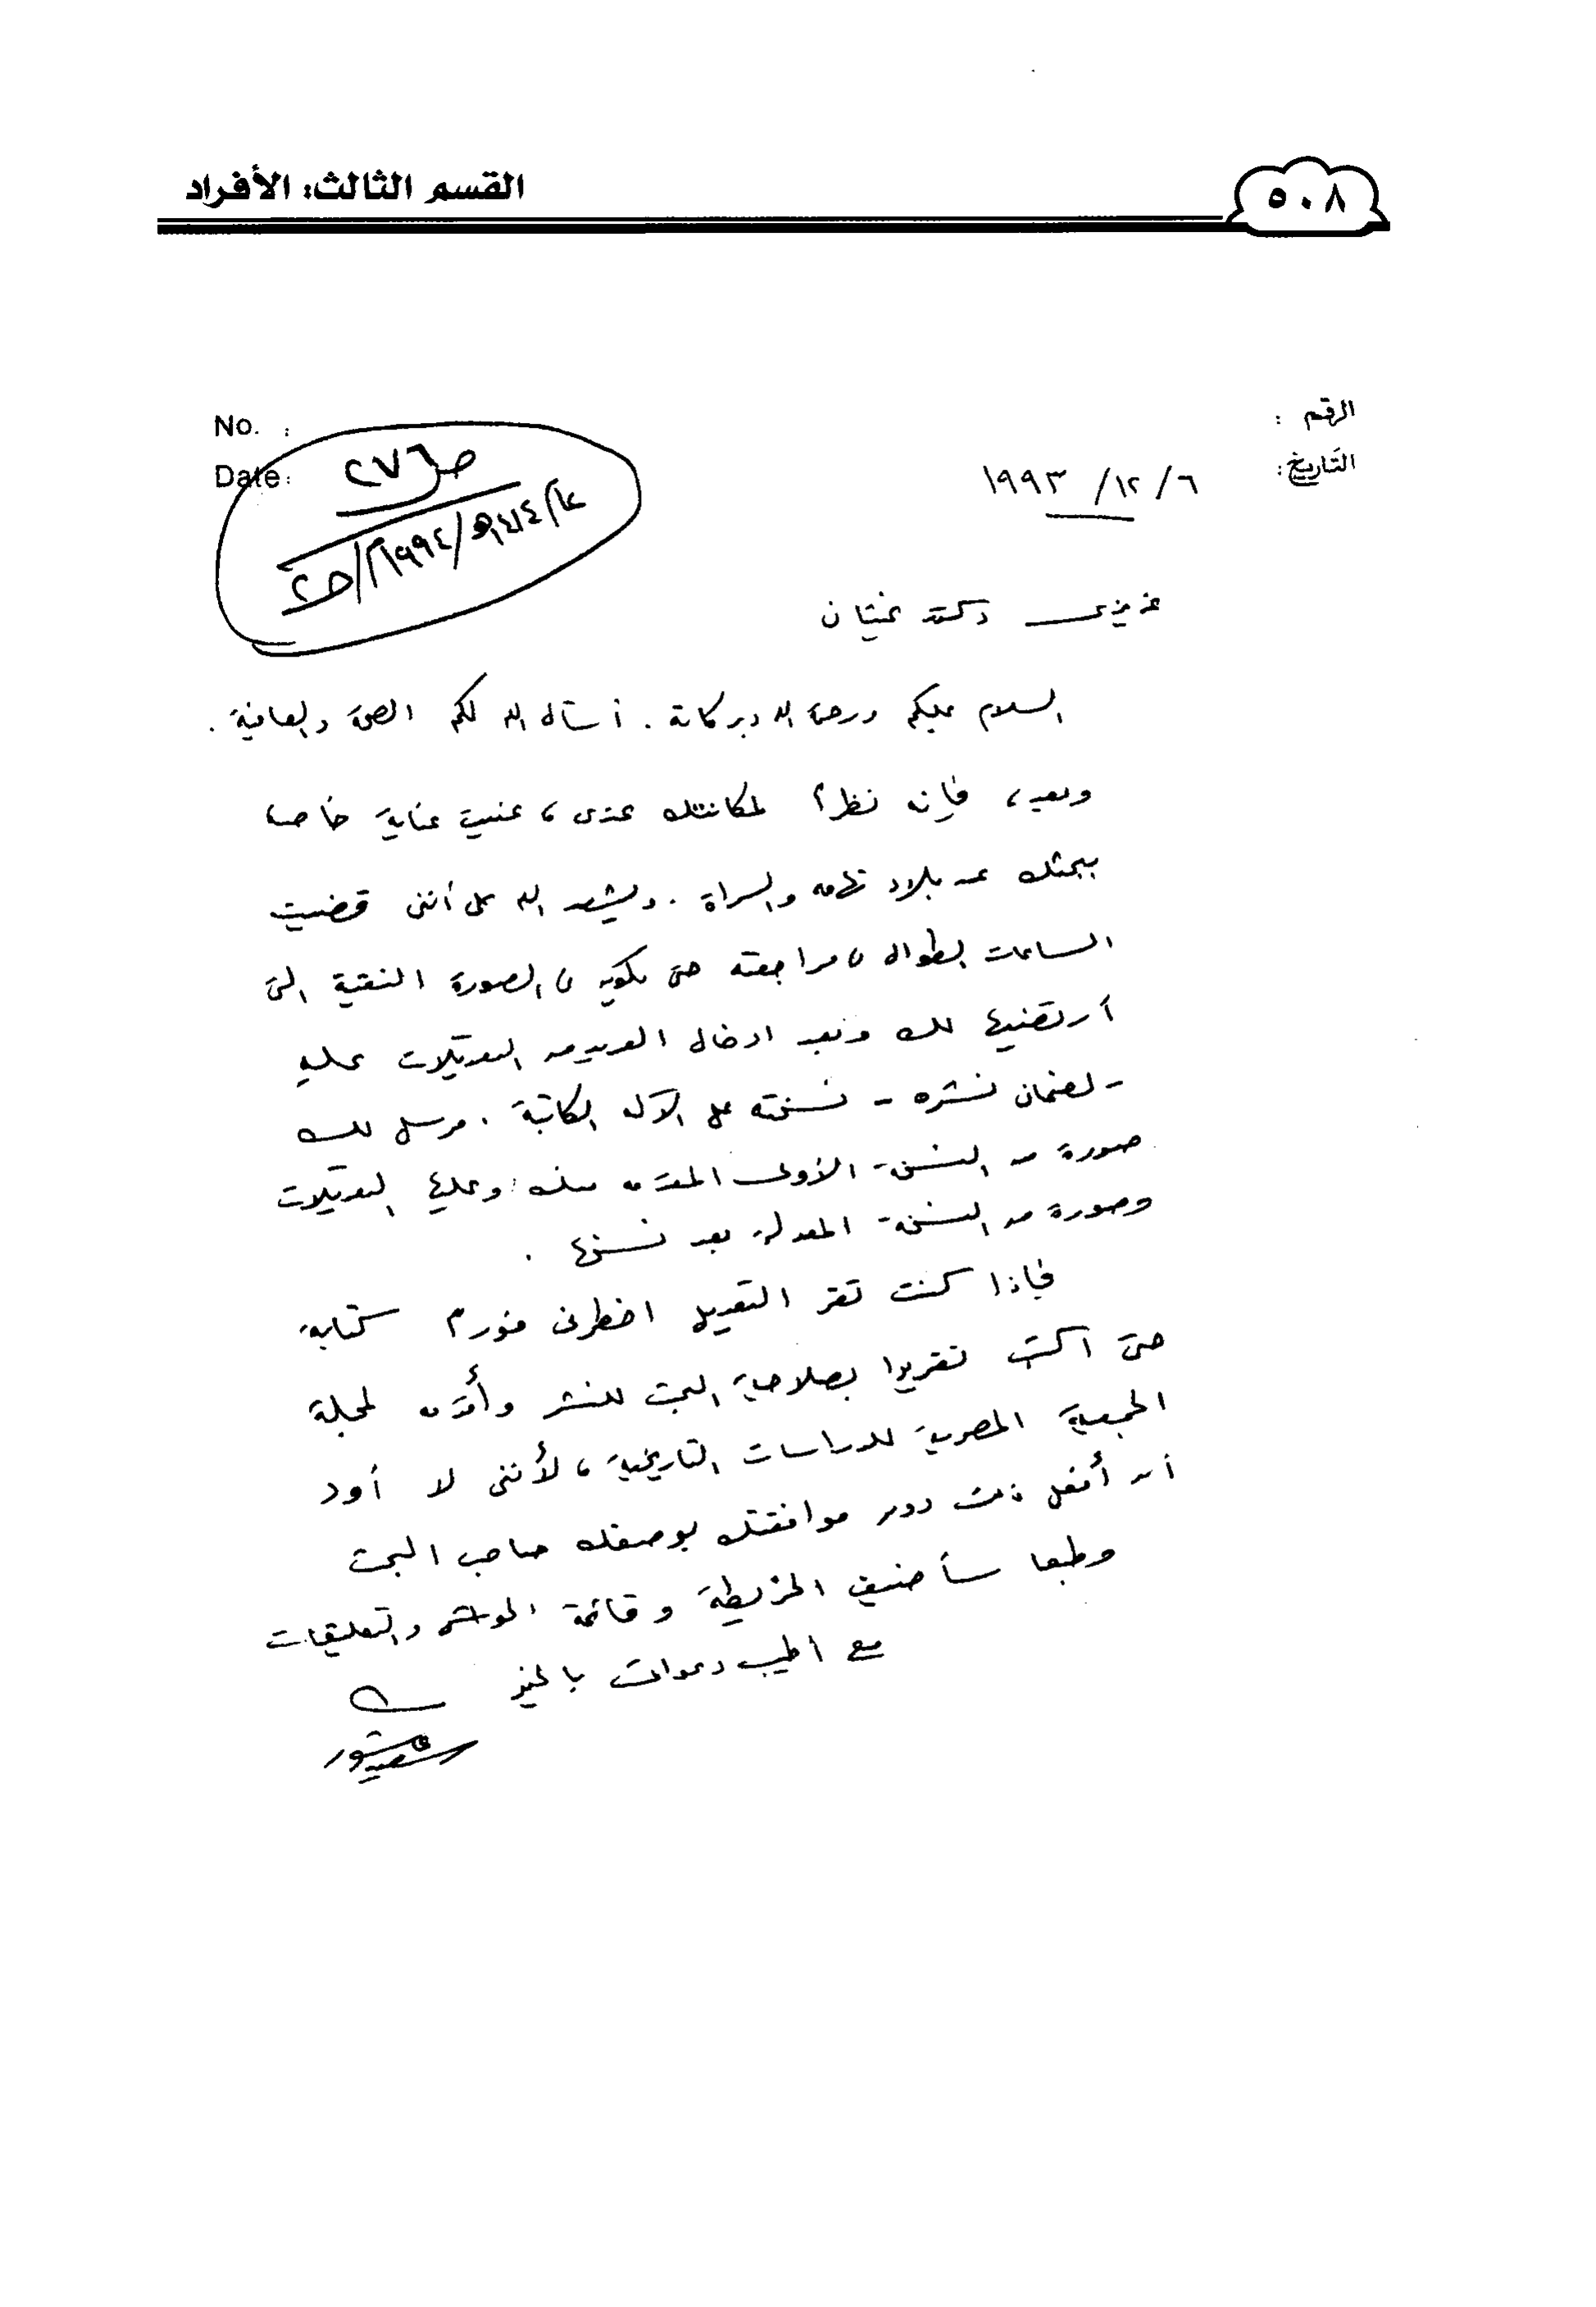 ٥٠٨
القسم الثالث: الأفراد
الرقم :
No. :
التاريخ: ٦ / ١٢ / ١٩٩٣
Date:
ص ٢٧٦
عزيزى دكتور غيثان
السلام عليكم ورحمة الله وبركاته . أسأل الله لكم الصحة والعافية .
وبعد ، فإنه نظراً لمكانتك عندى ، عنيت عناية خاصة
ببحثك عن بلاد تهامه والسراة . ويشهد الله على أننى قضيت
الساعات الطوال فى مراجعته حتى يكون فى الصورة النقية التى
أرتضيها لك وبعد ادخال العديد من التعديلات عليه
- لضمان نشره - نسخته على الآلة الكاتبة . مرسل لك
صورة من النسخة الأولى المقدمه منك وعليها التعديلات
وصورة من النسخة المعدلة بعد نسخها .
فإذا كنت تقر التعديل اخطرنى فوراً كتابة
حتى اكتب تقريرا بصلاحية البحث للنشر وأقدمه لمجلة
الجمعية المصرية للدراسات التاريخية ، لأننى لا أود
أن أفعل ذلك دون موافقتك بوصفك صاحب البحث
وطبعا سأضيف الخريطة وقائمة الحواشى والتعليقات
مع اطيب دعواتى بالخير
سعيد عاشور